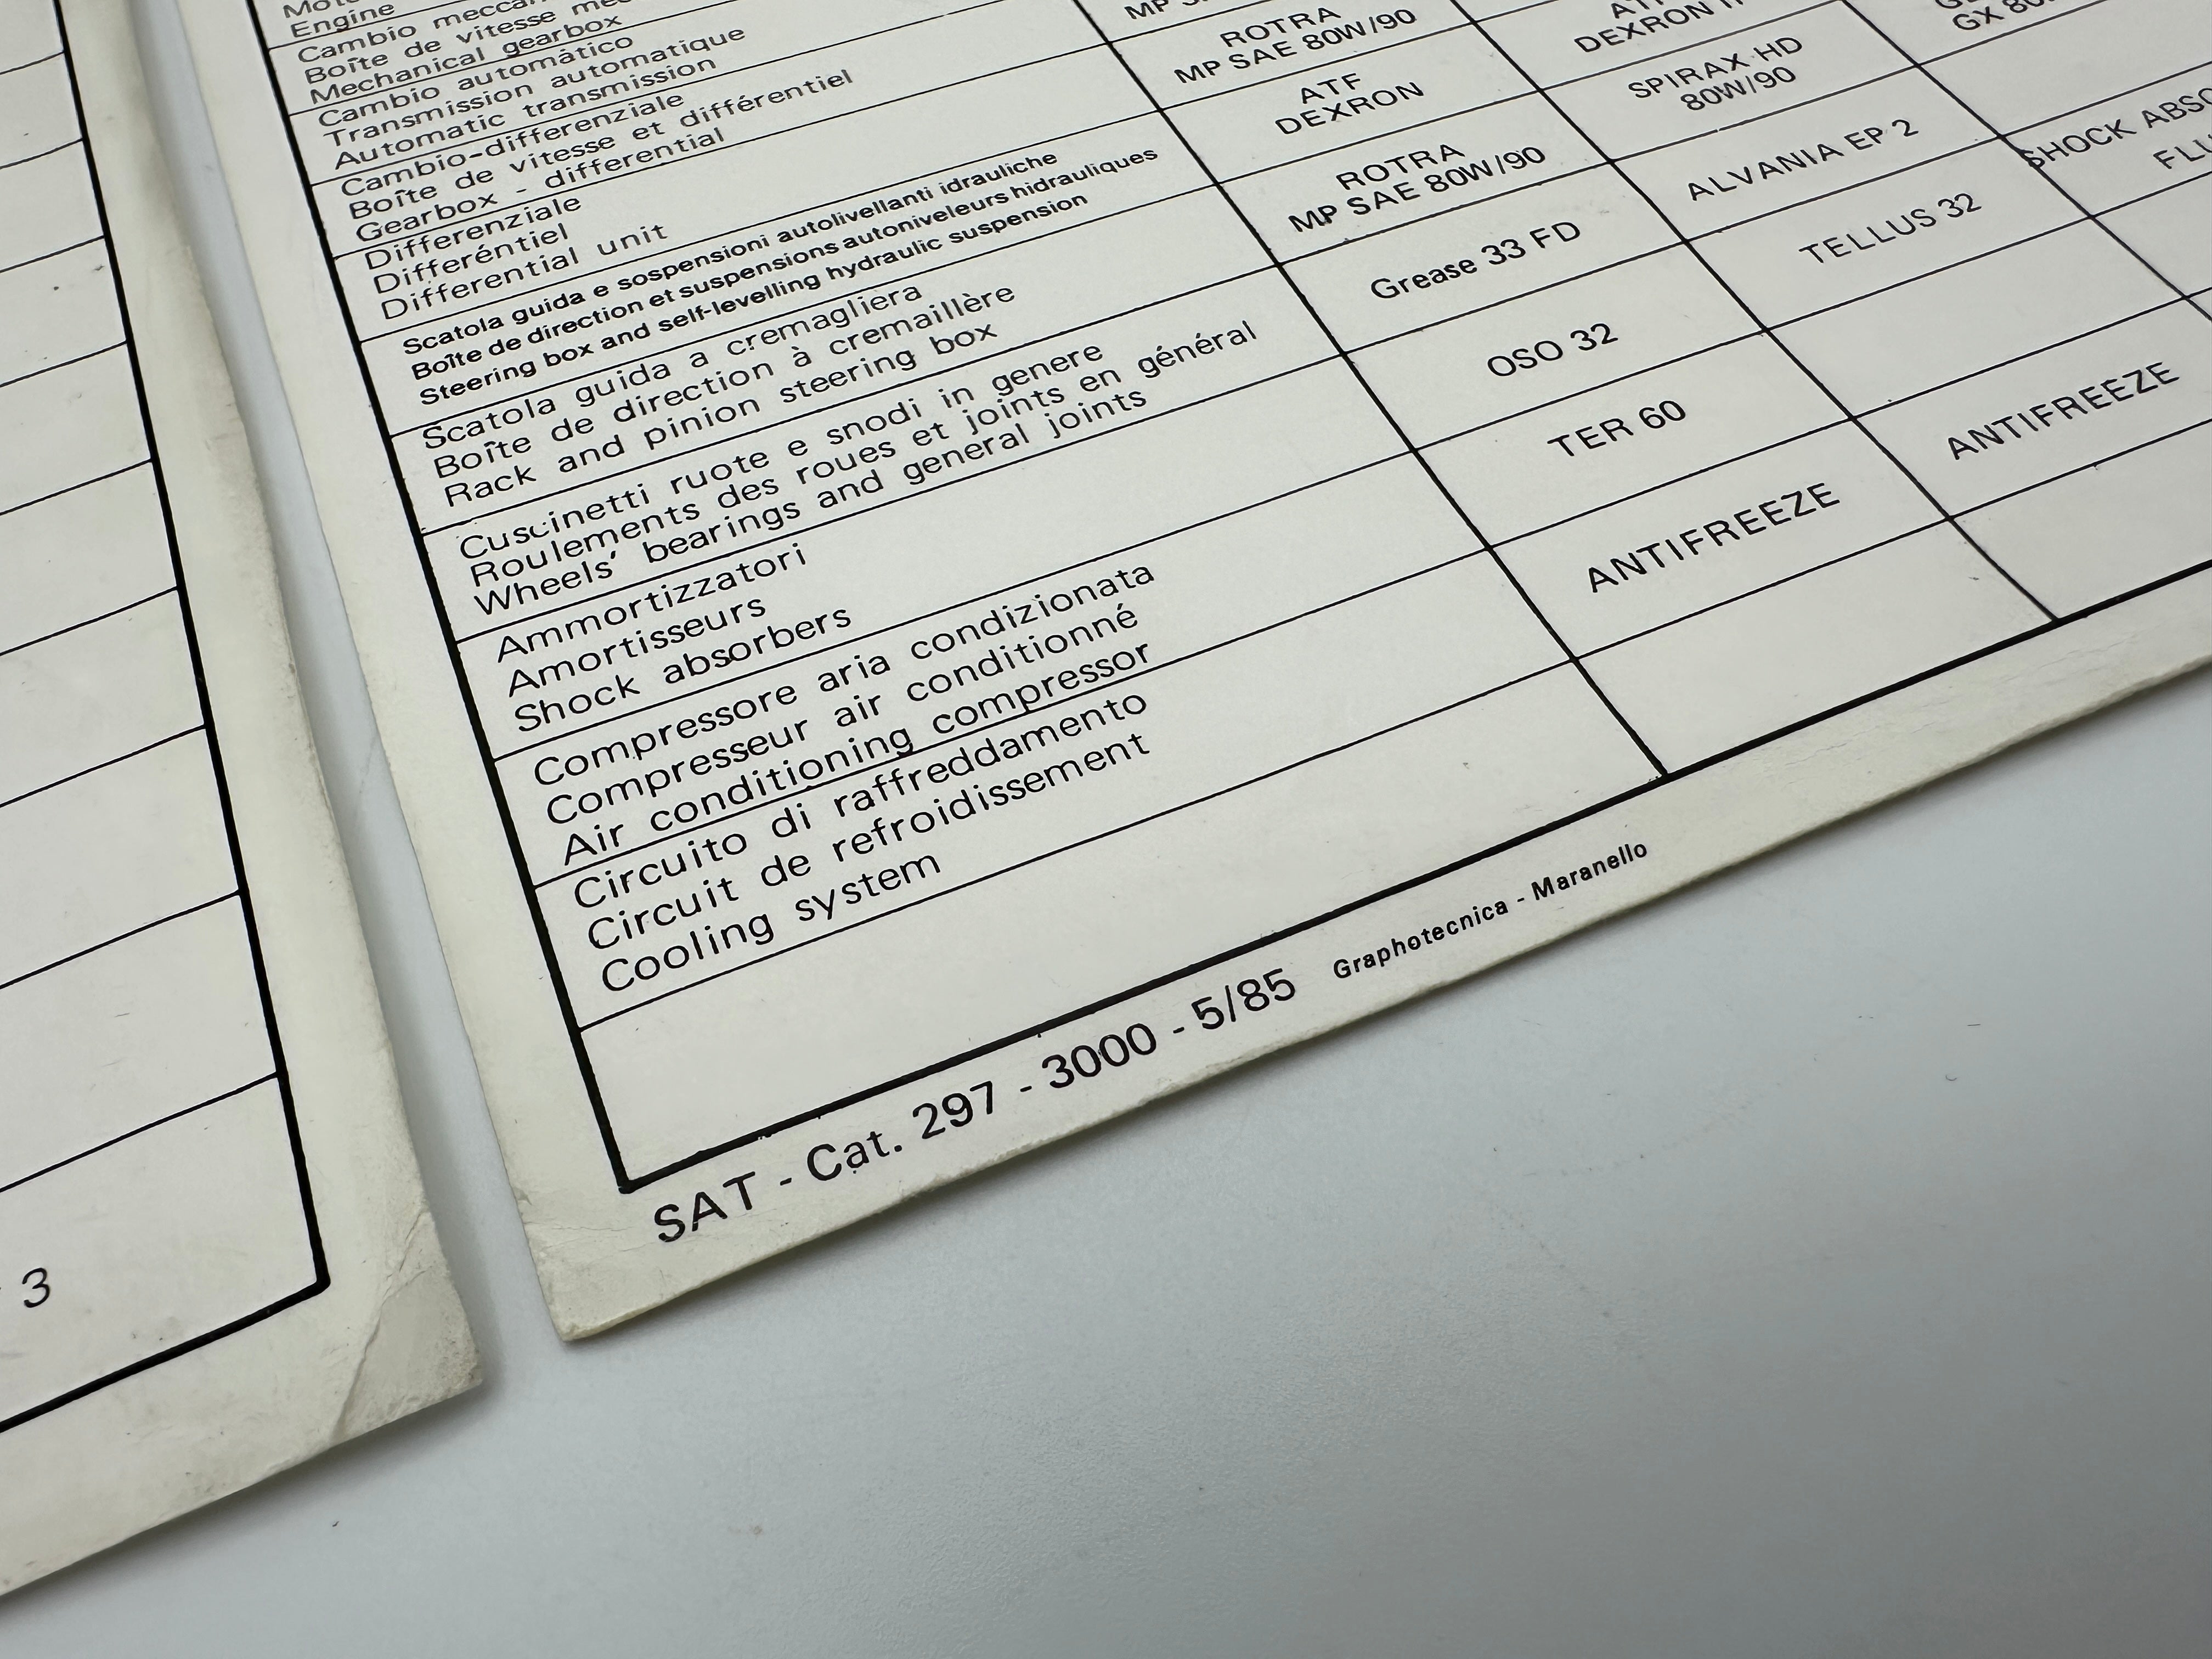 Engine
Cambio
Boîte de vitesse
Mechanical gearbox
Cambio automático
Transmission automatique
Automatic transmission
Cambio-differenziale
Boîte de vitesse et différentiel
Gearbox - differential
Differenziale
Différéntiel
Differential unit
Scatola guida e sospensioni autolivellanti idrauliche
Boîte de direction et suspensions autoniveleurs hidrauliques
Steering box and self-levelling hydraulic suspension
Scatola guida a cremagliera
Boîte de direction à cremaillère
Rack and pinion steering box
Cuscinetti ruote e snodi in genere
Roulements des roues et joints en général
Wheels' bearings and general joints
Ammortizzatori
Amortisseurs
Shock absorbers
Compressore aria condizionata
Compresseur air conditionné
Air conditioning compressor
Circuito di raffreddamento
Circuit de refroidissement
Cooling system
MP
ROTRA
MP SAE 80W/90
ATF
DEXRON
ROTRA
MP SAE 80W/90
Grease 33 FD
OSO 32
TER 60
ANTIFREEZE
DEXRON
SPIRAX HD
80W/90
ALVANIA EP 2
TELLUS 32
ANTIFREEZE
GX
SHOCK
SAT - Cat. 297 - 3000 - 5/85
Graphotecnica - Maranello
3